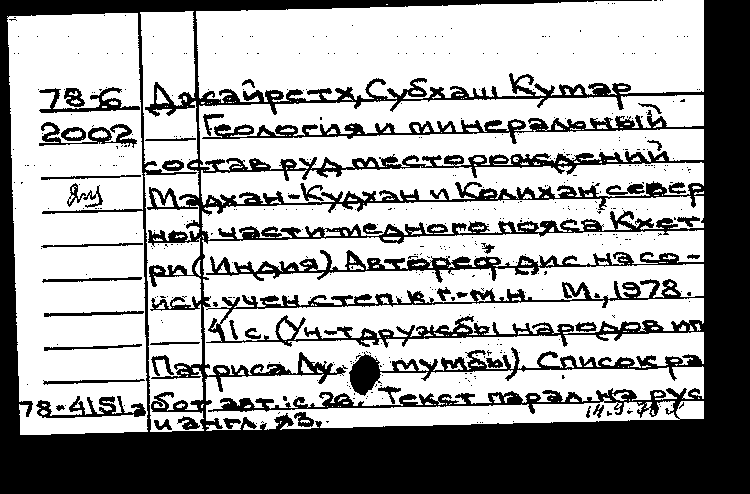 78-6 Джайретх, Субхаш Кумар
2002 Геология и минеральный
состав руд месторождений
Мадхан-Кудхан и Колихан, север
ной части медного пояса Кхет-
ри (Индия). Автореф. дис. на со-
иск. учен. степ. к. г.-м. н. М., 1978.
41 с. (Ун-т дружбы народов им
Патриса Лу- мумбы). Список ра
78-4151а бот авт.: с. 20. Текст парал. на рус
и англ. яз. 14.9.78